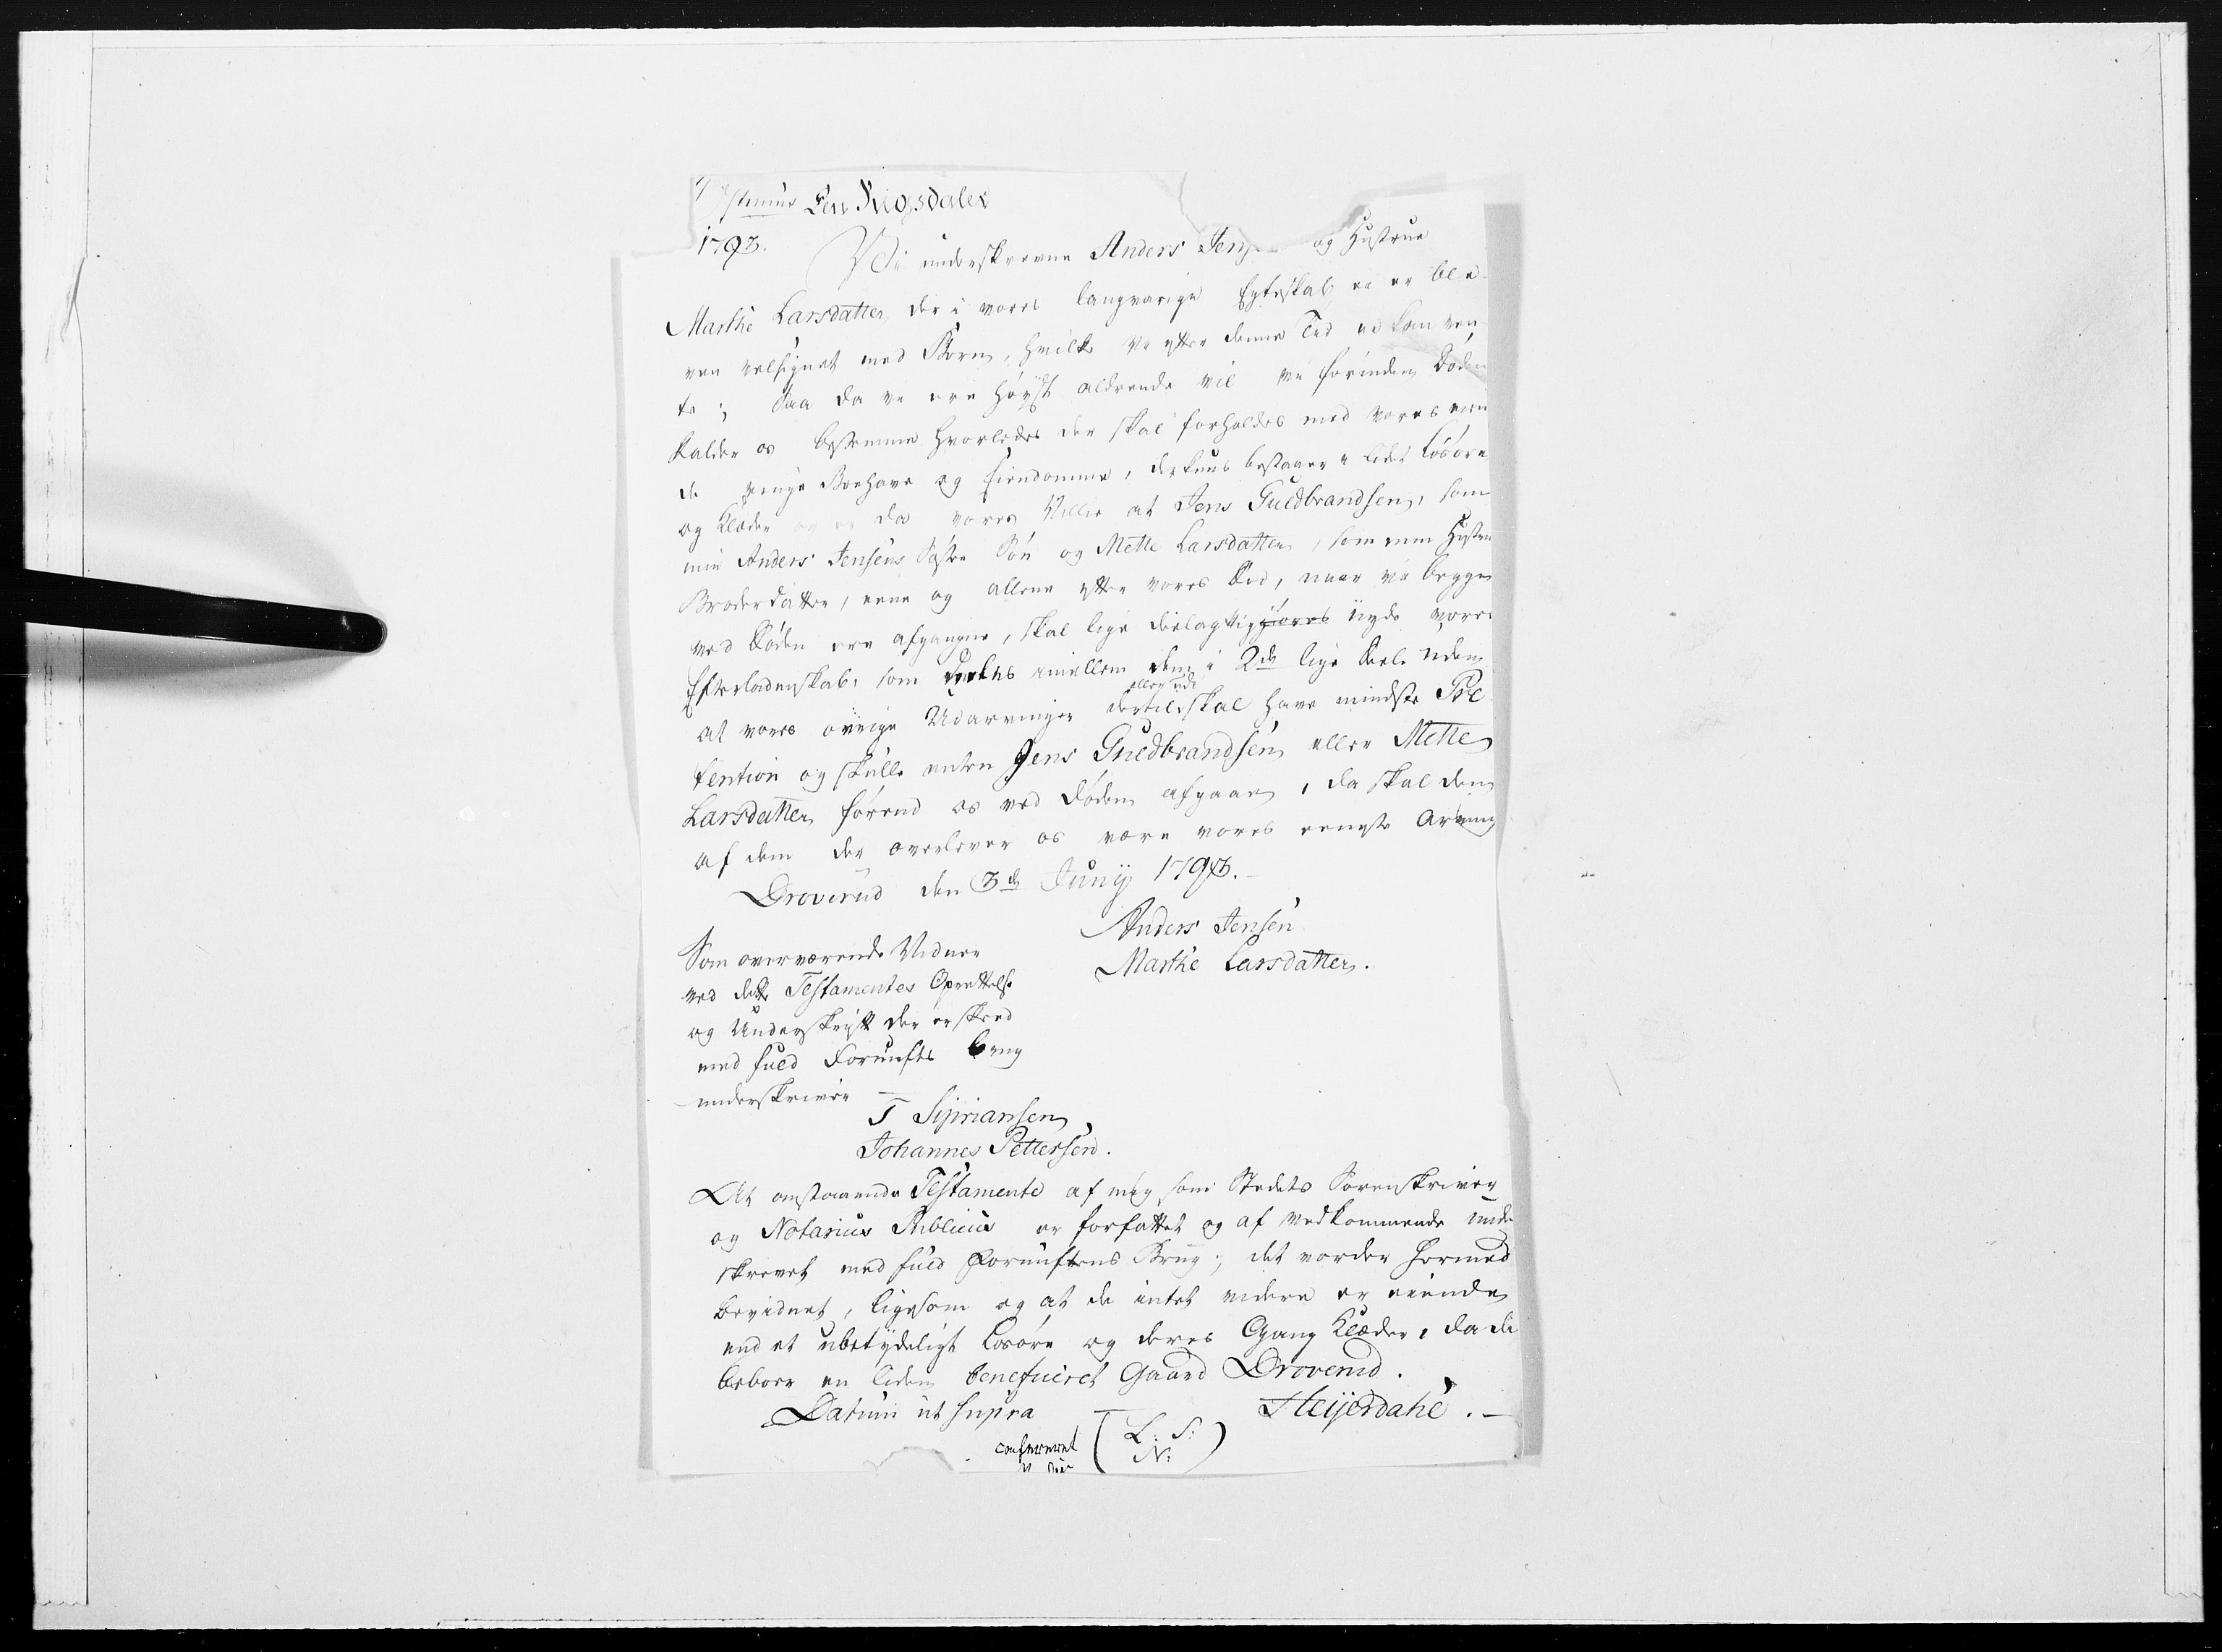 Een Rigsdaler
1793.
Vi underskrevne Anders Jens og Hustrue
Marthe Larsdatter, der i vores langvarige Egteskab ei er ble
ven velsignet med Børn, hvilke vi efter denne Tid ei kan ven
te; Saa da vi ere høyst aldrende vil vi forinden Døden
kalder os bestemme hvorledes der skal forholdes med vores rin
de ringe Boehave og Eiendomme, der kuns bestaaer i lidet Løsøre
og Klæder og er da vores Villie at Jens Guldbrandsen, som
min Anders Jensens Søster Søn og Mette Larsdatter, som min Hustru
Broderdatter, eene og allene efter vores Død, naar vi begge
ved Døden ere afgangne, skal lige deelagtiggiøres nyde vores
Efterladenskab, som deeles imellem dem i 2de lige Deele uden
at vores øvrige Udarvinger dertil skal have mindste Præ
tention og skulle enten Jens Guldbrandsen eller Mette
Larsdatter førend os ved Døden afgaae, da skal den
af dem der overlever os være vores eeneste Arving
Droverud den 3de Junij 1793.
Anders Jensen
Marthe Larsdatter.
Som overværende Vidner
ved dette Testamentes Oprettelse
og Underskrift der er skeed
med fuld Fornufts brug
underskriver
T Sipriansen
Johannes Pettersen.
At omstaaende Testamente af mig som Stedets Sorenskriver
og Notarius Publicus er forfattet og af Vedkommende under
skrevet med fuld Fornuftens Brug; det vorder hermed
bevidnet, ligesom og at de intet videre er eiende
end et ubetydeligt Løsøre og deres Gang Klæder, da de
beboer en liden beneficeret Gaard Droverud.
Datum ut supra
Heijerdahl.
(L: S:
N:)
confereret